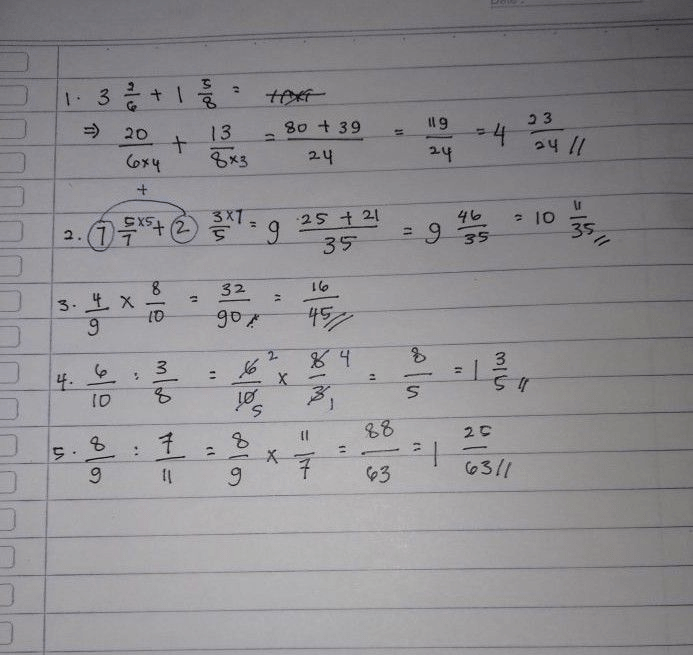 1. 3 2/6 + 1 5/8 =
⇒ 20/6×4 + 13/8×3 = 80 + 39/24 = 119/24 = 4 23/24 //
+
2. 7 5×5/7 + 2 3×7/5 = 9 25 + 21/35 = 9 46/35 = 10 11/35 //
3. 4/9 × 8/10 = 32/90 = 16/45 //
4. 6/10 : 3/8 = 6 2/10 5 × 8 4/3 1 = 8/5 = 1 3/5 //
5. 8/9 : 7/11 = 8/9 × 11/7 = 88/63 = 1 25/63 //